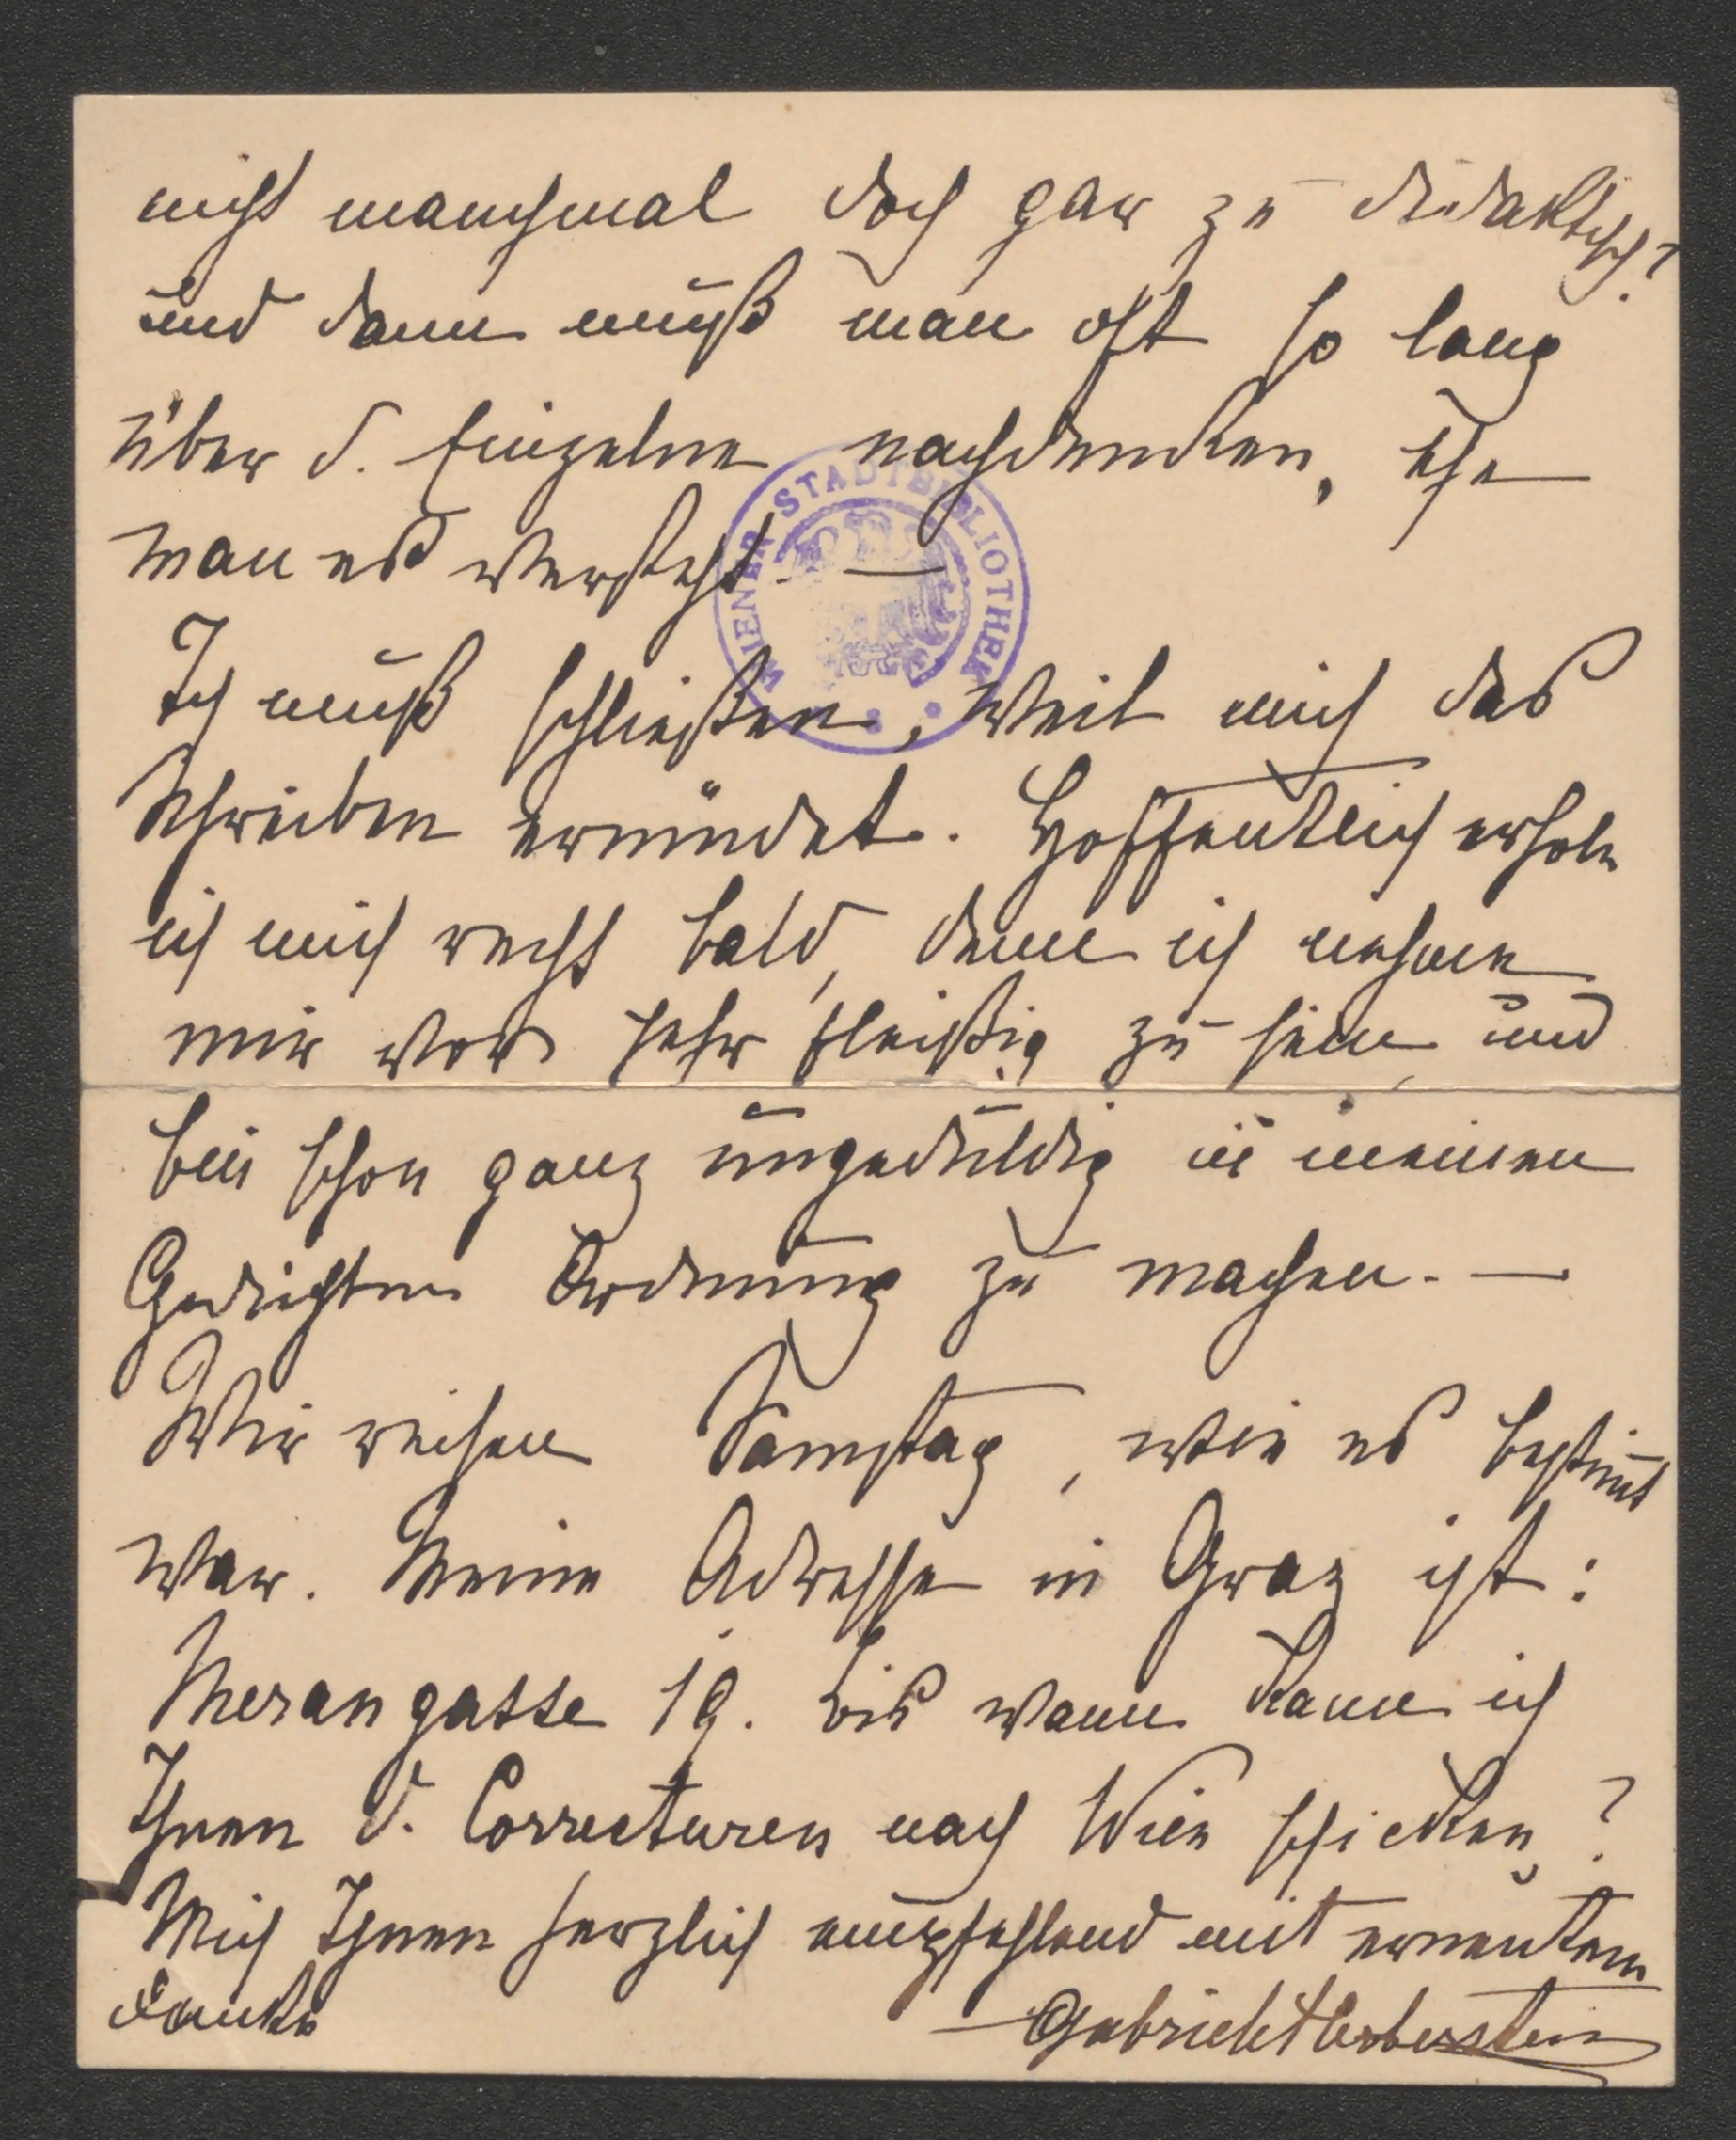 nicht manchmal doch gar zu didaktisch?
und dann muß man oft so lang
über d. Einzelne nachdenken, ehe
man es versteht. —
WIENER STADTBIBLIOTHEK
Ich muß schließen, weil mich das
Schreiben ermüdet. Hoffentlich erhole
ich mich recht bald, denn ich nehme
mir vor sehr fleißig zu sein, und
bin schon ganz ungeduldig in meinen
Gedichten Ordnung zu machen. —
Wir reisen Samstag, wie es bestim̅t
war. Meine Adresse in Graz ist:
Merangasse 19. Bis wann kann ich
Ihnen d. Correcturen nach Wien schicken?
Mich Ihnen herzlich empfehlend mit erneutem
Danke
Gabriele Herberstein